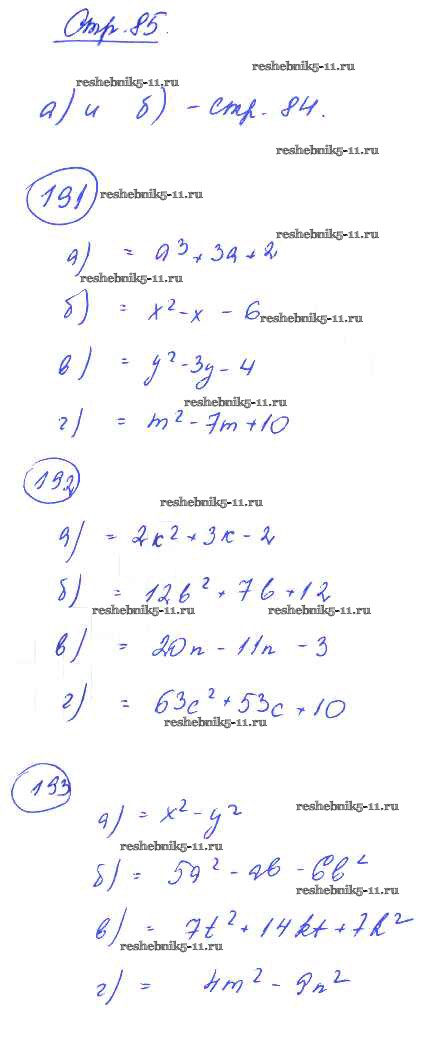 Стр. 85.
reshebnik5-11.ru
reshebnik5-11.ru
а) и б) - стр. 84.
reshebnik5-11.ru
191 reshebnik5-11.ru
reshebnik5-11.ru
а) = a³ + 3a + 2
reshebnik5-11.ru
б) = x² - x - 6 reshebnik5-11.ru
в) = y² - 3y - 4
reshebnik5-11.ru
г) = m² - 7m + 10
192
reshebnik5-11.ru
а) = 2к² + 3к - 2
б) = 12b² + 7b + 12
reshebnik5-11.ru reshebnik5-11.ru
в) = 20n - 11n - 3
г) = 63c² + 53c + 10
reshebnik5-11.ru
193
reshebnik5-11.ru
а) = x² - y²
reshebnik5-11.ru
б) = 5a² - ab - 6b²
reshebnik5-11.ru
в) = 7t² + 14kt + 7k²
reshebnik5-11.ru
г) = 4m² - 9n²